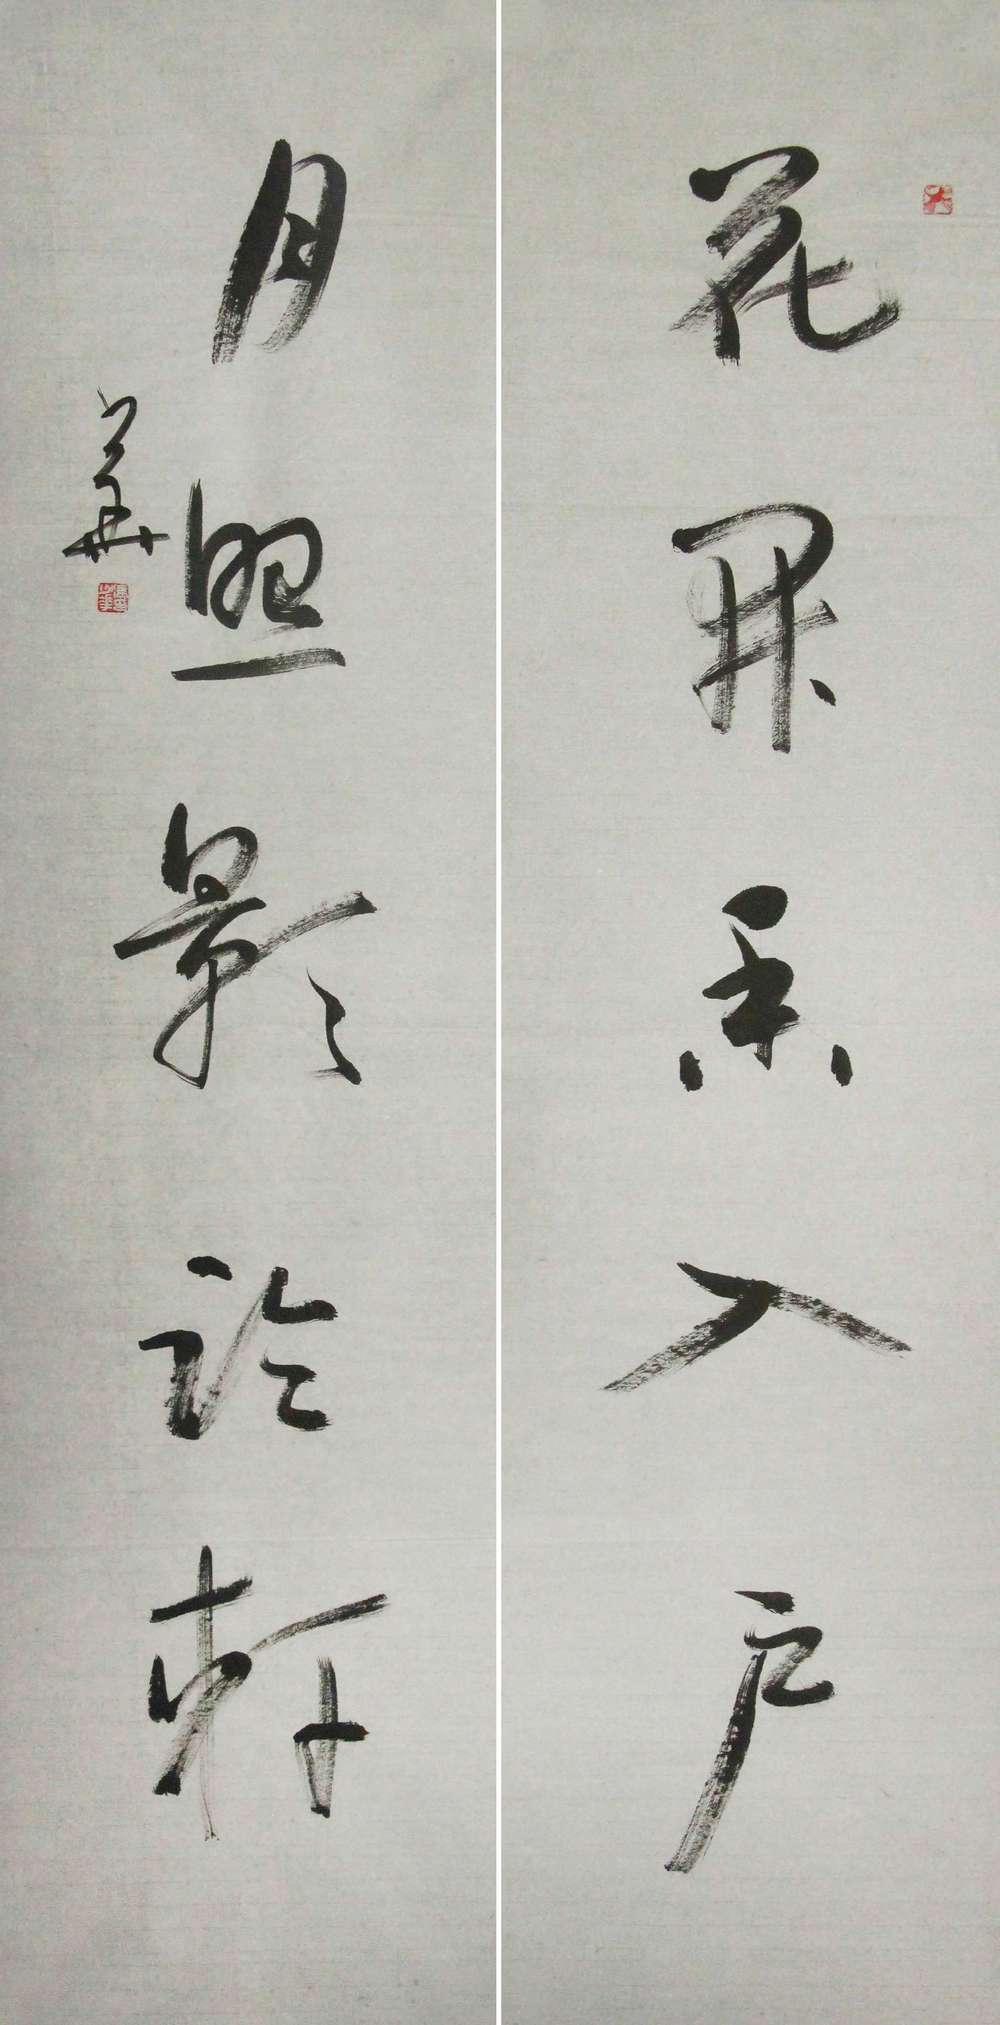 花開香入戶
月照影臨軒
華